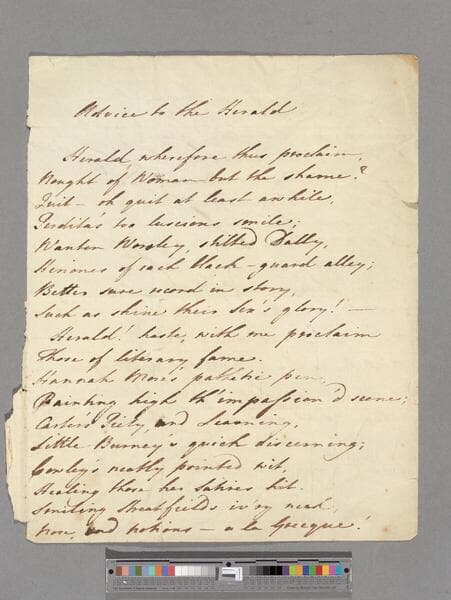 Advice to the Herald
Herald, wherefore thus proclaim,
Nought of Woman but the shame?
Quit – oh quit at least awhile,
Perdita's too luscious smile;
Wanton Worsley, stilted Dally,
Heroines of each black-guard alley;
Better sure record in story,
Such as shine their Sex's glory! —
Herald! haste, with me proclaim
Those of literary fame.
Hannah More's pathetic pen,
Painting high th' impassion'd scene;
Carter's Piety, and Learning,
Little Burney's quick discerning;
Cowley's neatly pointed wit,
Healing those her Satires hit.
Smiling Streatfield's iv'ry neck,
Nose, and notions – a la Grecque!